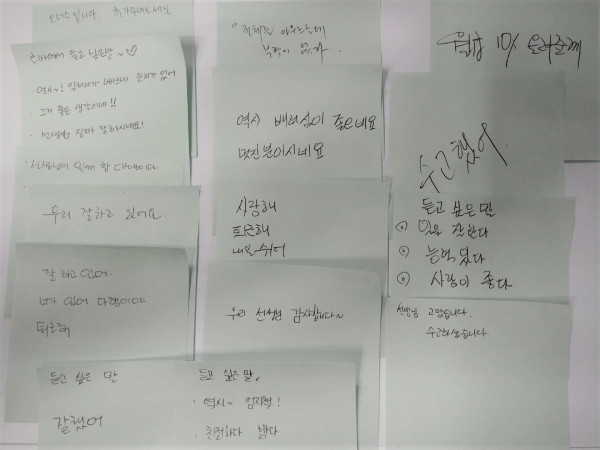 회사에서 듣고 싶은말~♡
· 그거 좋은 생각이네!!
· 선생님 진짜 잘하시네요!
선생님이 있어 참 다행이다.
우리 잘하고 있어요.
잘 하고 있어.
너가 있어 다행이야
퇴근해
듣고 싶은 말
잘했어
전체를 아우르는데
부족이 없다
역시 배려심이 좋으네요
멋진분이시네요
사랑해
퇴근해
내일 쉬어
우리 선생님 감사합니다~
듣고 싶은말
· 역시~ 엄지척!
· 친절하다 밝다.
월급 10% 올려줄께
수고했어
듣고 싶은 말
일을 잘한다
능력있다
사람이 좋다
선생님 고맙습니다.
수고하셨습니다.